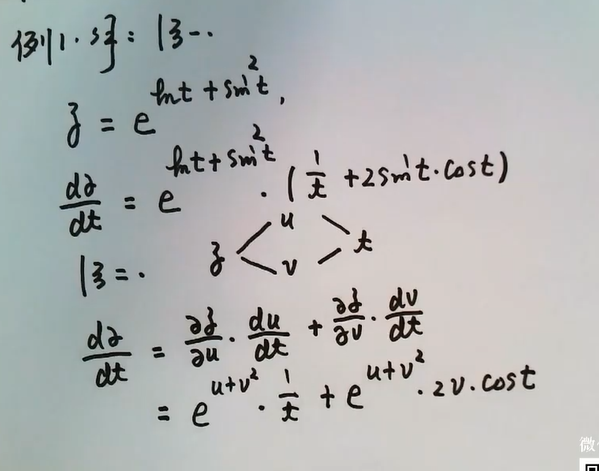 例1.解:法一.
z = e^{lnt + sin²t},
dz/dt = e^{lnt + sin²t} · (1/t + 2sint·cost)
法二. z < u v > t
dz/dt = ∂z/∂u · du/dt + ∂z/∂v · dv/dt
= e^{u+v²} · 1/t + e^{u+v²} · 2v·cost
微